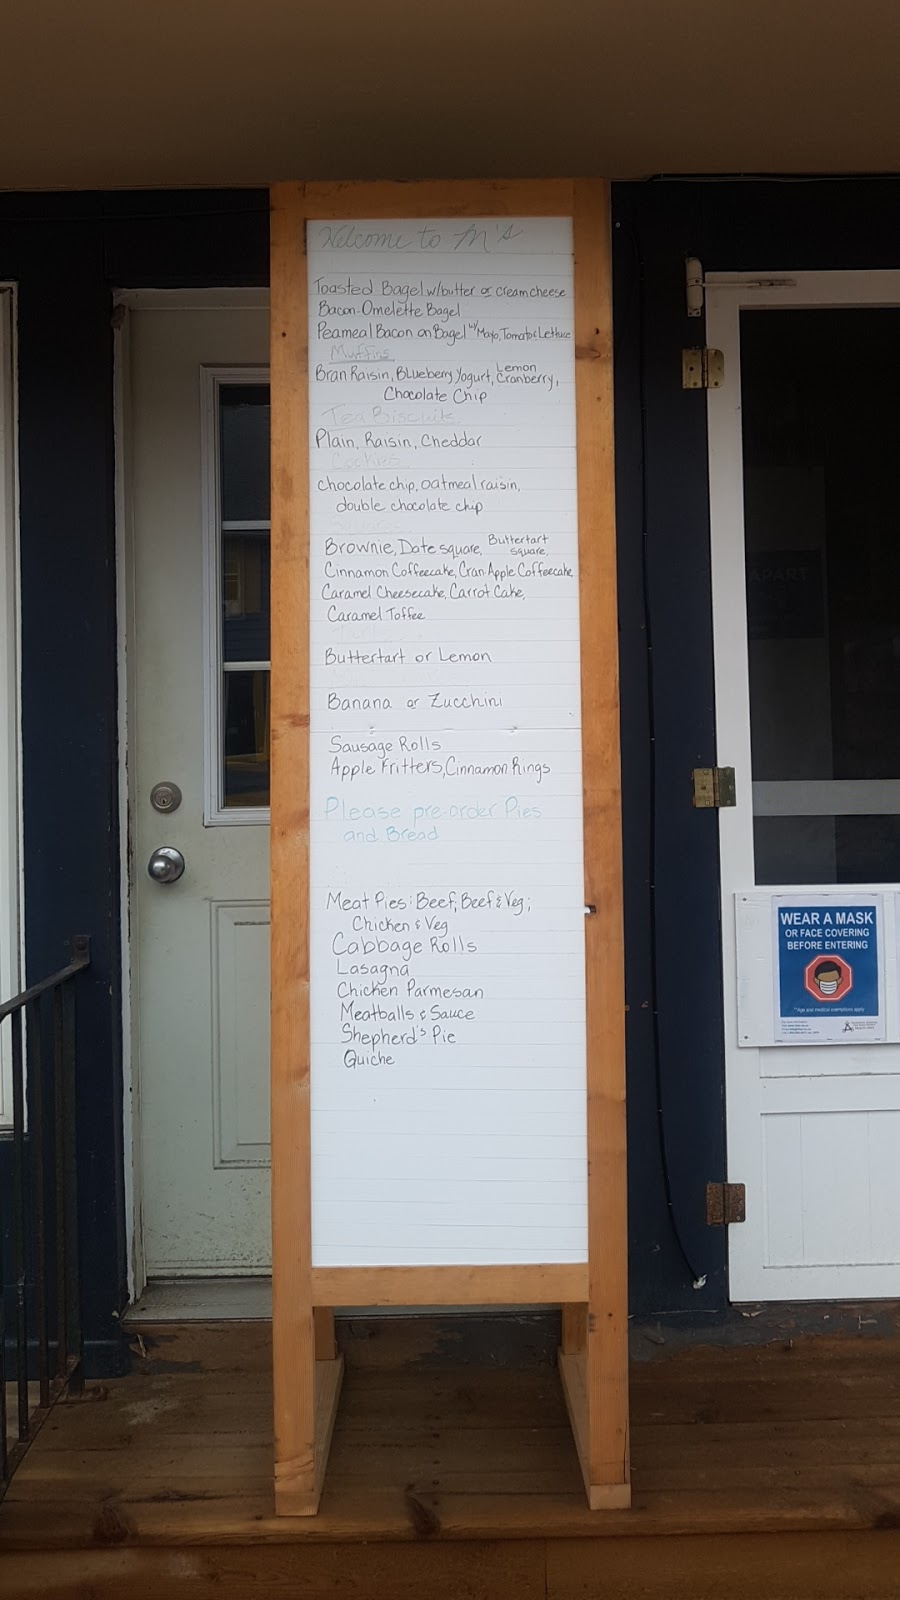 Welcome to M's
Toasted Bagel w/butter or creamcheese
Bacon-Omelette Bagel
Peameal Bacon on Bagel w/ Mayo, Tomato & Lettuce
Muffins
Bran Raisin, Blueberry Yogurt, Lemon Cranberry,
Chocolate Chip
Tea Biscuits
Plain, Raisin, Cheddar
Cookies
chocolate chip, oatmeal raisin,
double chocolate chip
Squares
Brownie, Date square, Buttertart square,
Cinnamon Coffeecake, Cran-Apple Coffeecake,
Caramel Cheesecake, Carrot Cake,
Caramel Toffee
Buttertart or Lemon
Banana or Zucchini
Sausage Rolls
Apple Fritters, Cinnamon Rings
Please pre-order Pies
and Bread
Meat Pies: Beef, Beef & Veg;
Chicken & Veg
Cabbage Rolls
Lasagna
Chicken Parmesan
Meatballs & Sauce
Shepherd's Pie
Quiche
APART
WEAR A MASK
OR FACE COVERING
BEFORE ENTERING
*Age and medical exemptions apply